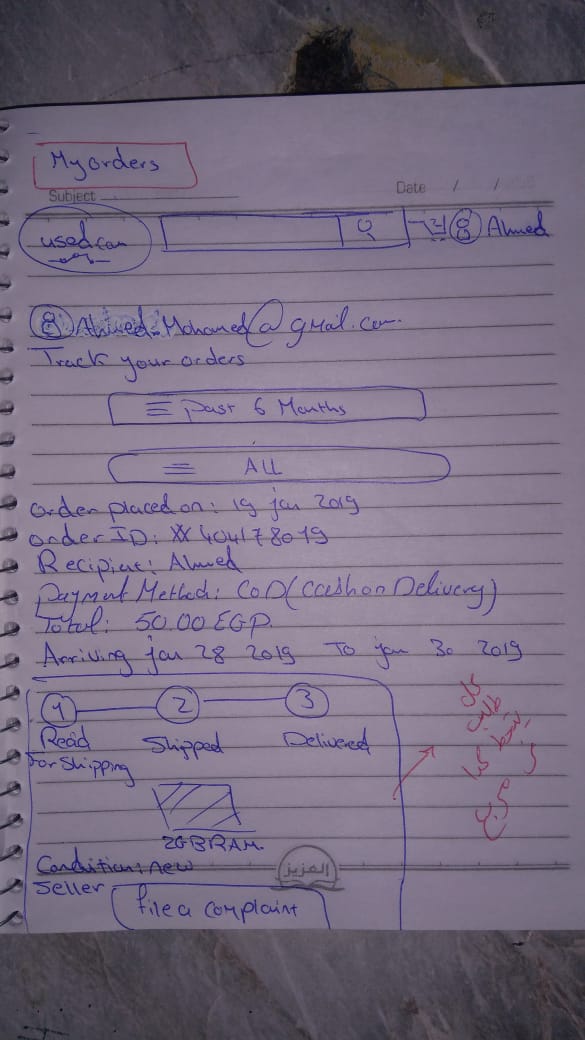 My orders
Subject
Date / /
used.com
Ahmed
Ahmed.Mohamed@gmail.com.
Track your orders
Past 6 Months
ALL
order placed on: 19 jan 2019
order ID: 404178019
Recipient: Ahmed
Payment Method: CoD (Cash on Delivery)
Total: 50.00 EGP.
Arriving jan 28 2019 To jan 30 2019
1 2 3
Read Shipped Delivered
For Shipping
2GB RAM.
Condition: new
العزيز
Seller
file a complaint
كل
طلب
مربع